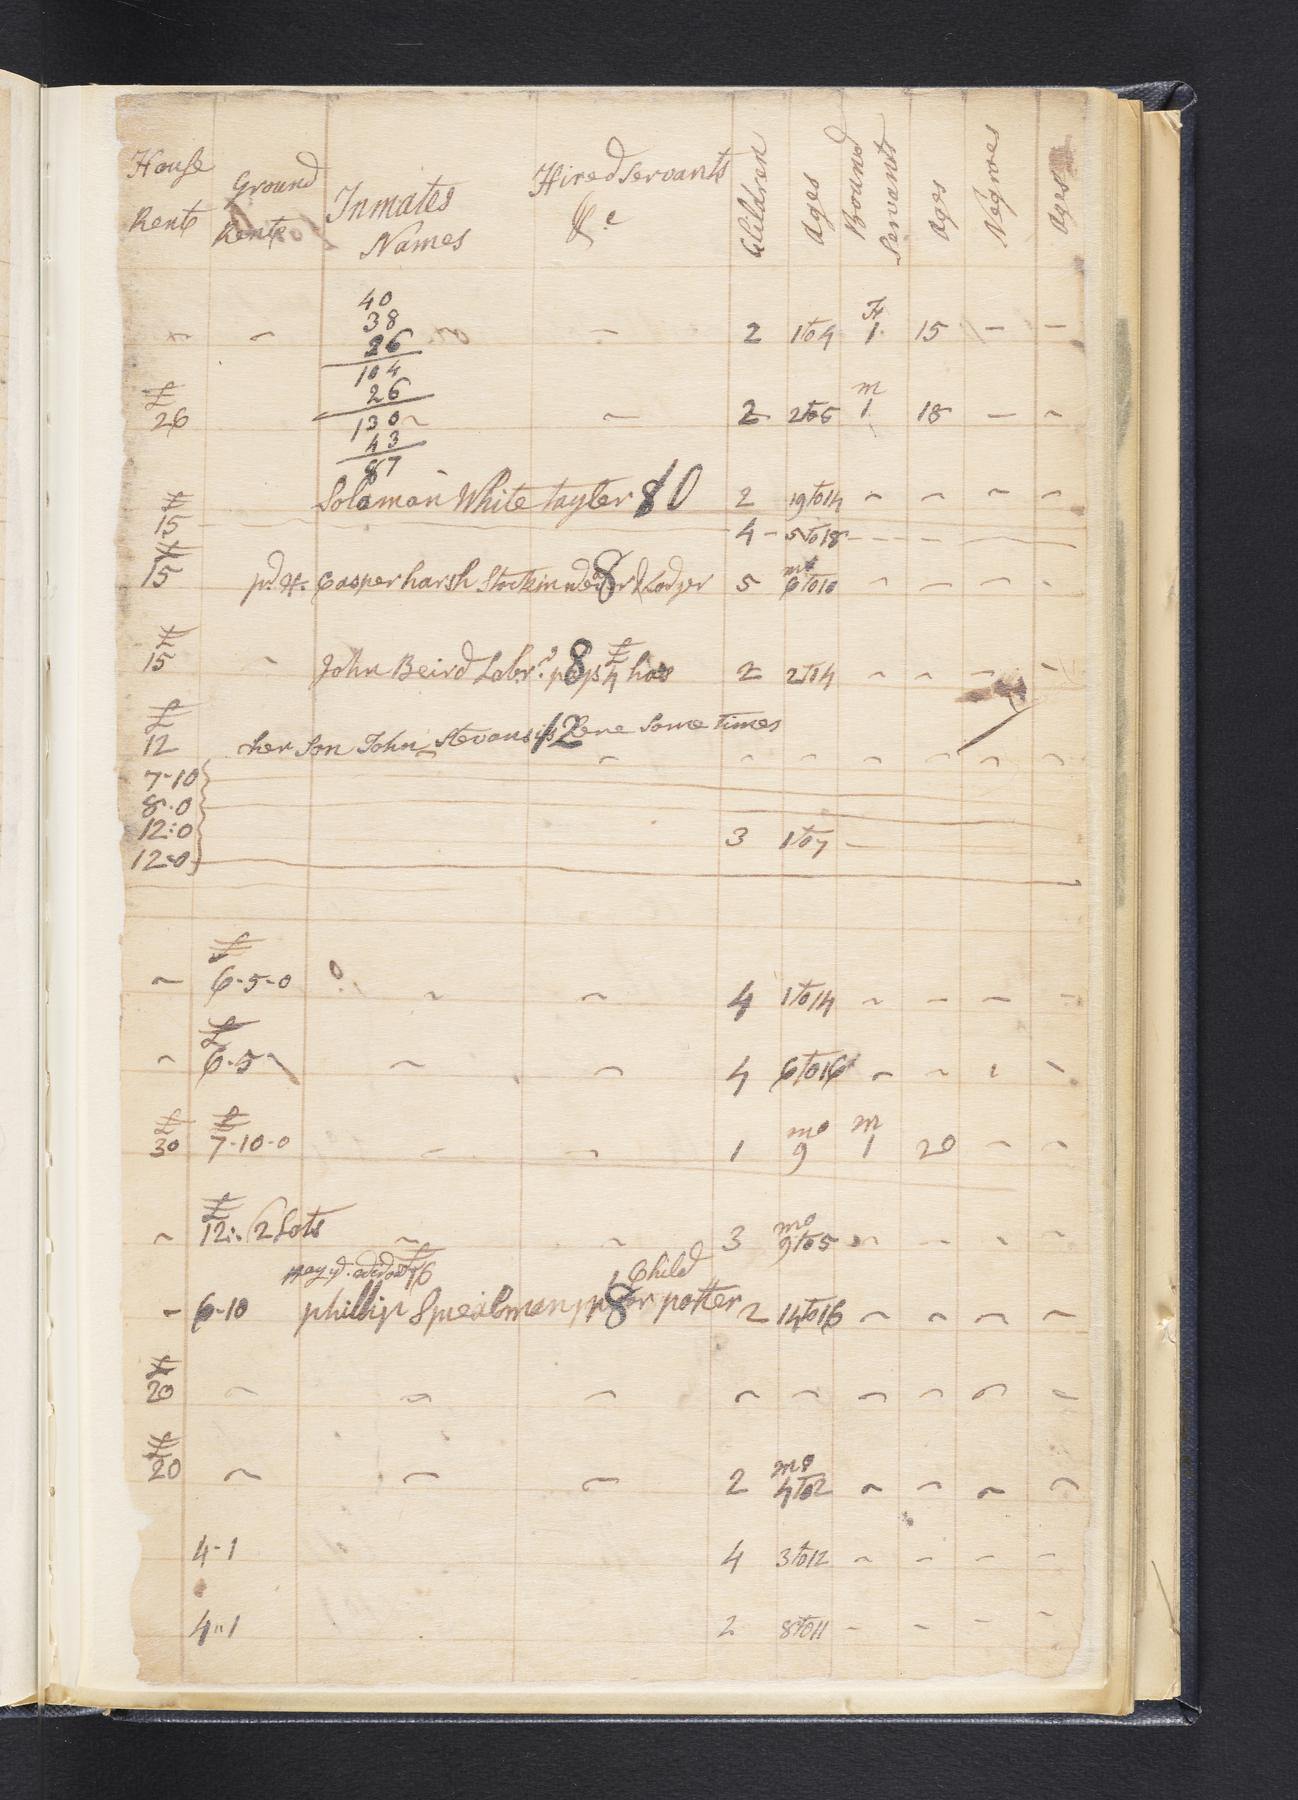 House Rents Ground Rents Inmates Names Hired Servants &c Children Ages Bound Servants Ages Negroes Ages
40
38
26
104
26
130
43
87
~ ~ ~ 2 1 to 4 F 1 15 – –
£ 26 ~ 2 2 to 5 m 1 18 – ~
£ 15 Solaman White tayler 80 2 19 to 14 ~ ~ ~ ~
4 - 5 to 18 - - - -
£ 15 pd. Casper harsh Stockin 8 Lodger 5 mo 6 to 10 ~ – ~ ~
£ 15 ~ John Beird Labr. pays 8 £ 4 has 2 2 to 4 ~ ~ ~ ~
£ 12 her Son John Stevans is 12 Some times
~ ~ ~ ~ ~ ~ ~
7-10
8-0
12:0 3 1 to 7 –
12-0
~ £ 6-5-0 ~ ~ 4 1 to 14 ~ – – –
~ £ 6-5 ~ ~ ~ 4 6 to 16 ~ ~ ~ ~
£ 30 £ 7-10-0 ~ ~ 1 mo 9 m 1 20 ~ ~
~ £ 12: 2 Lots ~ ~ 3 mo 9 to 5 ~ ~ ~ ~
£6 1 Child
– 6-10 phillip Spealman 8 potter 2 14 to 16 ~ ~ ~ ~
£ 20 ~ ~ ~ ~ ~ ~ ~ ~ ~
£ 20 ~ ~ ~ 2 mo 4 to 2 ~ ~ ~ ~
4-1 4 3 to 12 ~ ~ ~ ~
4"1 2 8 to 11 – ~ – ~